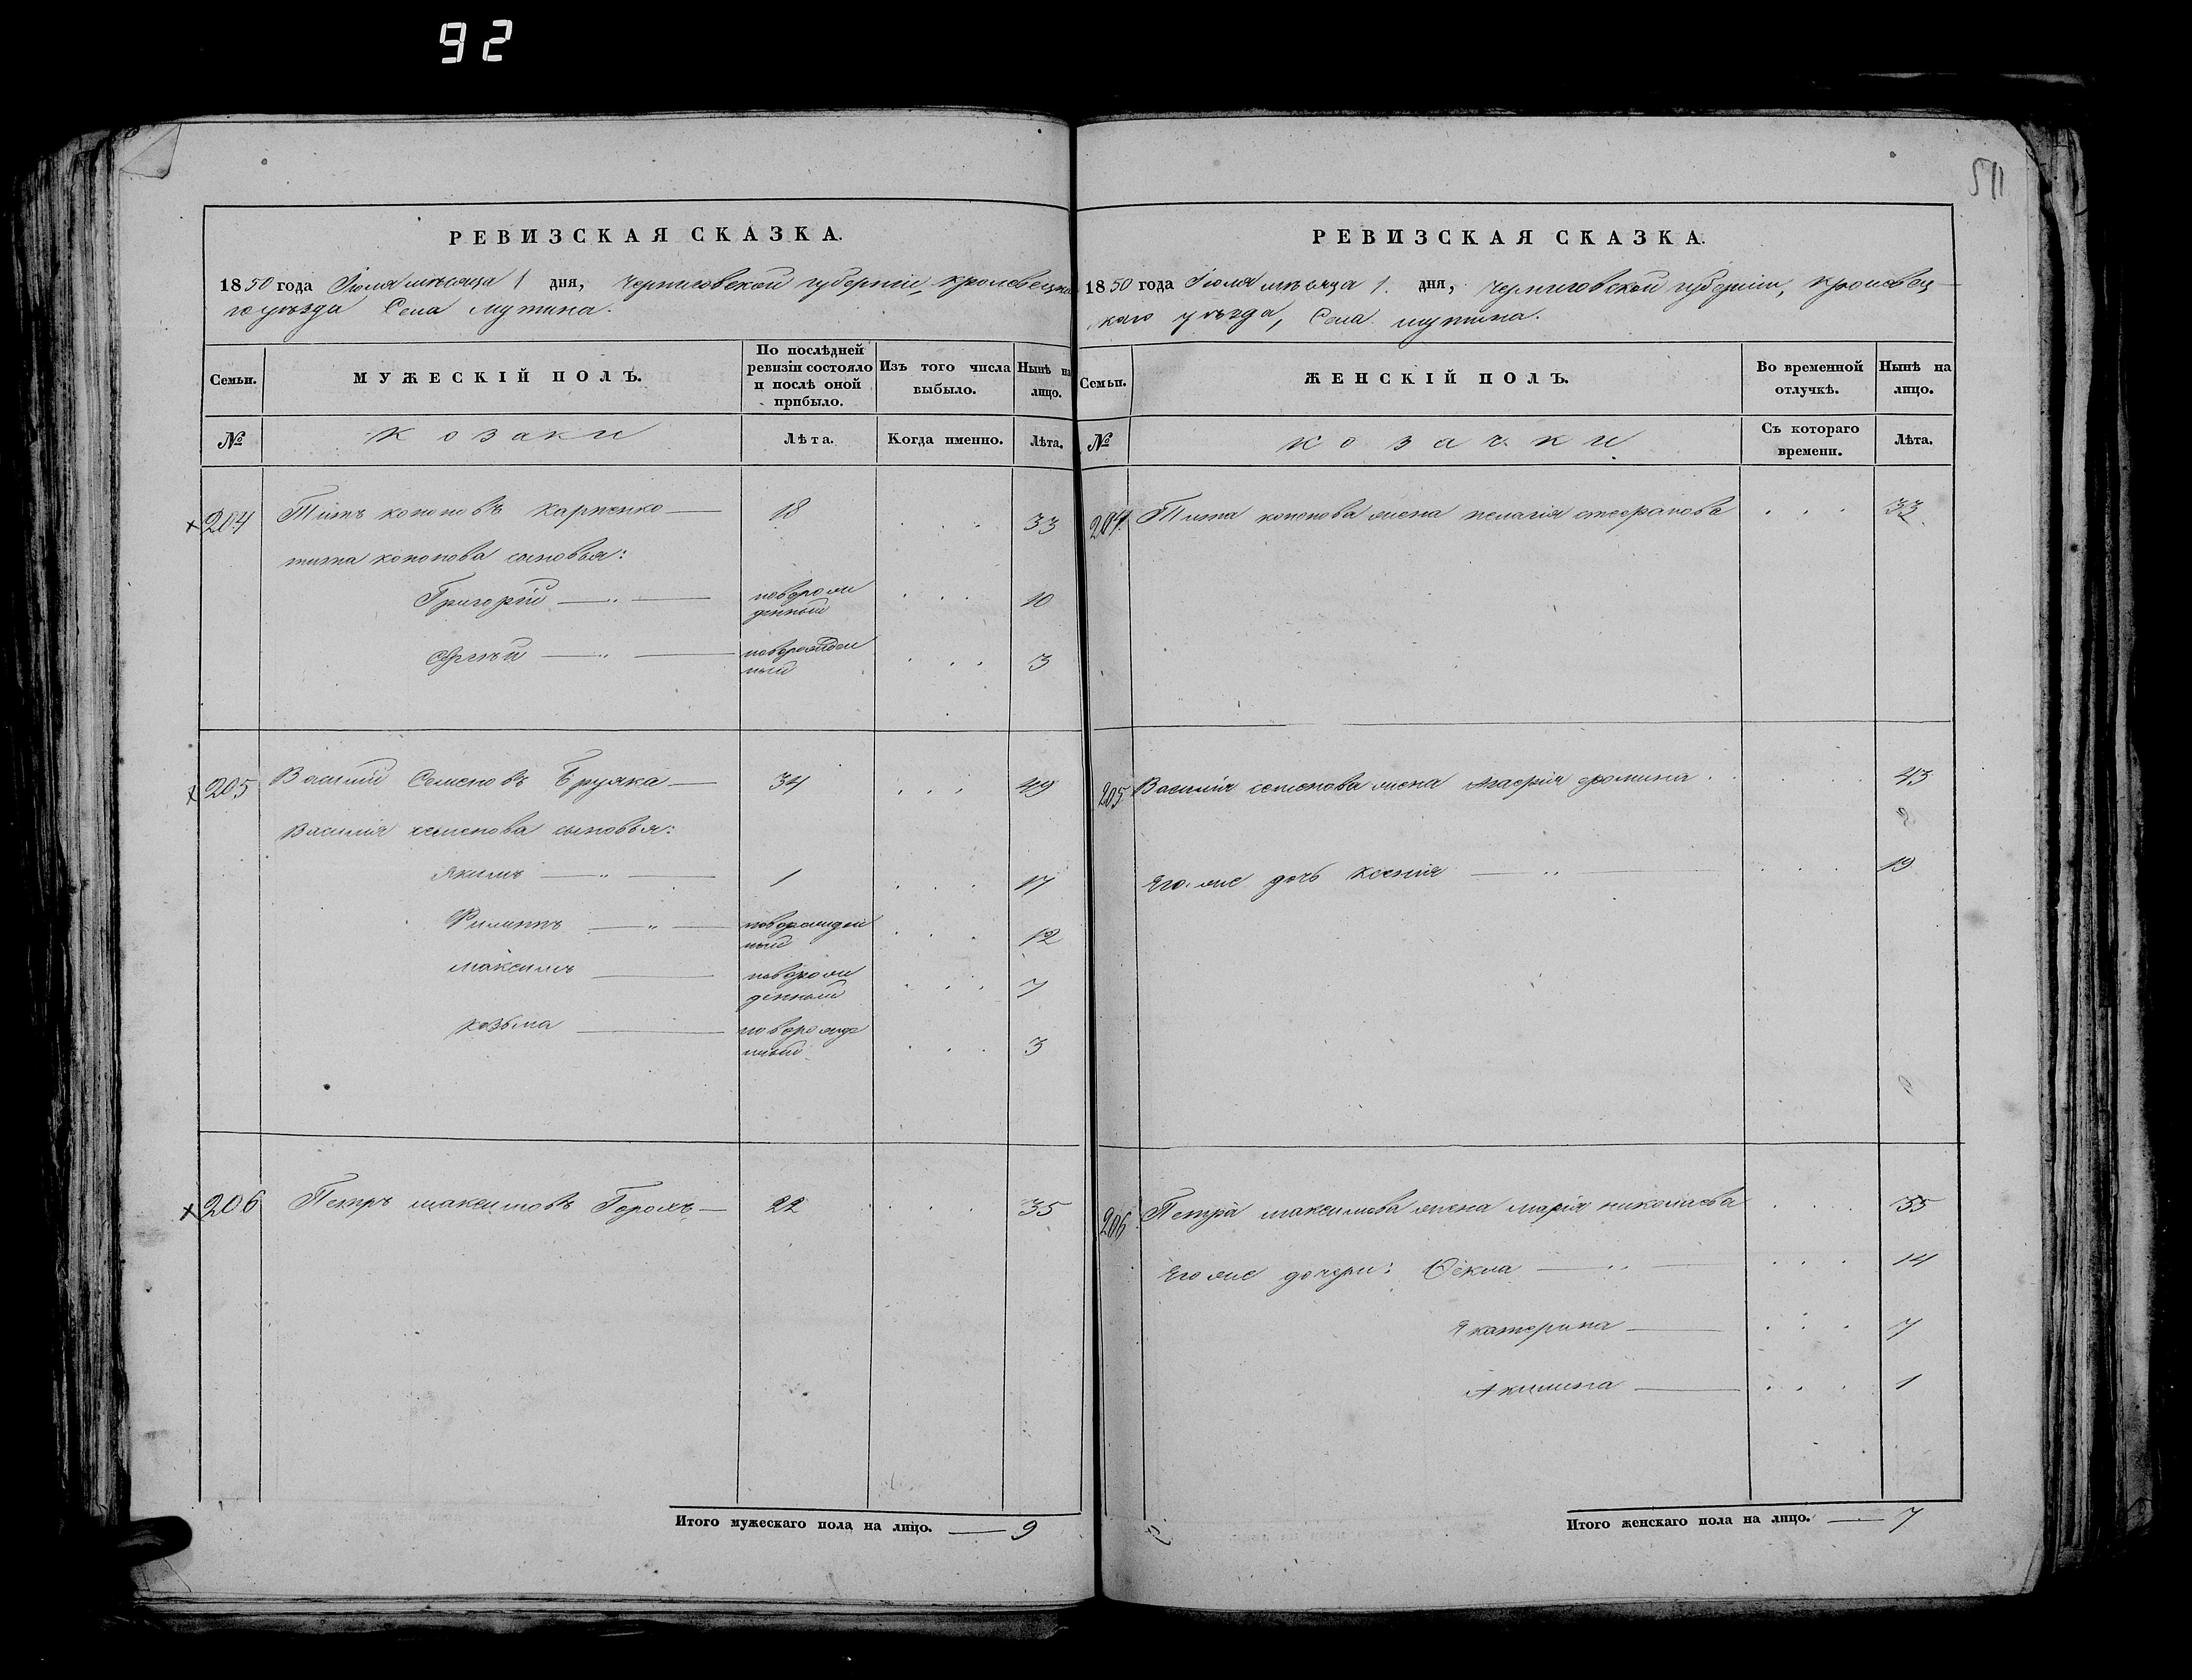 92
511
РЕВИЗСКАЯ СКАЗКА.
1850 года Іюля мѣсяца 1 дня, Черниговской губерніи, кролевецка
го уѣзда Села мутина.
Семьи.
МУЖЕСКІЙ ПОЛЪ.
По послѣдней ревизіи состояло и послѣ оной прибыло.
Изъ того числа выбыло.
Нынѣ на лицо.
№
козаки
Лѣта.
Когда именно.
Лѣта.
204 Титъ кононовъ карпенко — 18 . . . 33
тита кононова сыновья:
Григорій — „ — новорож
денный . . . 10
Сергѣй — „ — новорожден
ный . . . 3
205 Василий Семеновъ Бруяка — 34 . . . 49
Василія семенова сыновья:
Якимъ — „ — 1 . . . 17
Филиппъ — „ — новорожден
ный . . . 12
максимъ — новорож
денный . . . 7
козьма — новорожде
нный . . . 3
206 Петръ максимовъ Горохъ — 22 . . . 35
Итого мужескаго пола на лицо. — 9
РЕВИЗСКАЯ СКАЗКА.
1850 года Іюля мѣсяца 1. дня, черниговской губерніи, кролевец
каго уѣзда, Села мутина.
Семьи.
ЖЕНСКІЙ ПОЛЪ.
Во временной отлучкѣ.
Нынѣ на лицо.
№
козачки
Съ котораго времени.
Лѣта.
204. Тита кононова жена пелагія стефанова . . . 33
205 Василія семенова жена фомина . . . . 43
Его же дочь ксенія — „ — . . . 19
206 Петра максимова жена марія николаева . . . 35
Его же дочери: Ѳекла — „ — . . . 14
Екатерина — . . . 7
Акилина — . . . 1
Итого женскаго пола на лицо. — 7